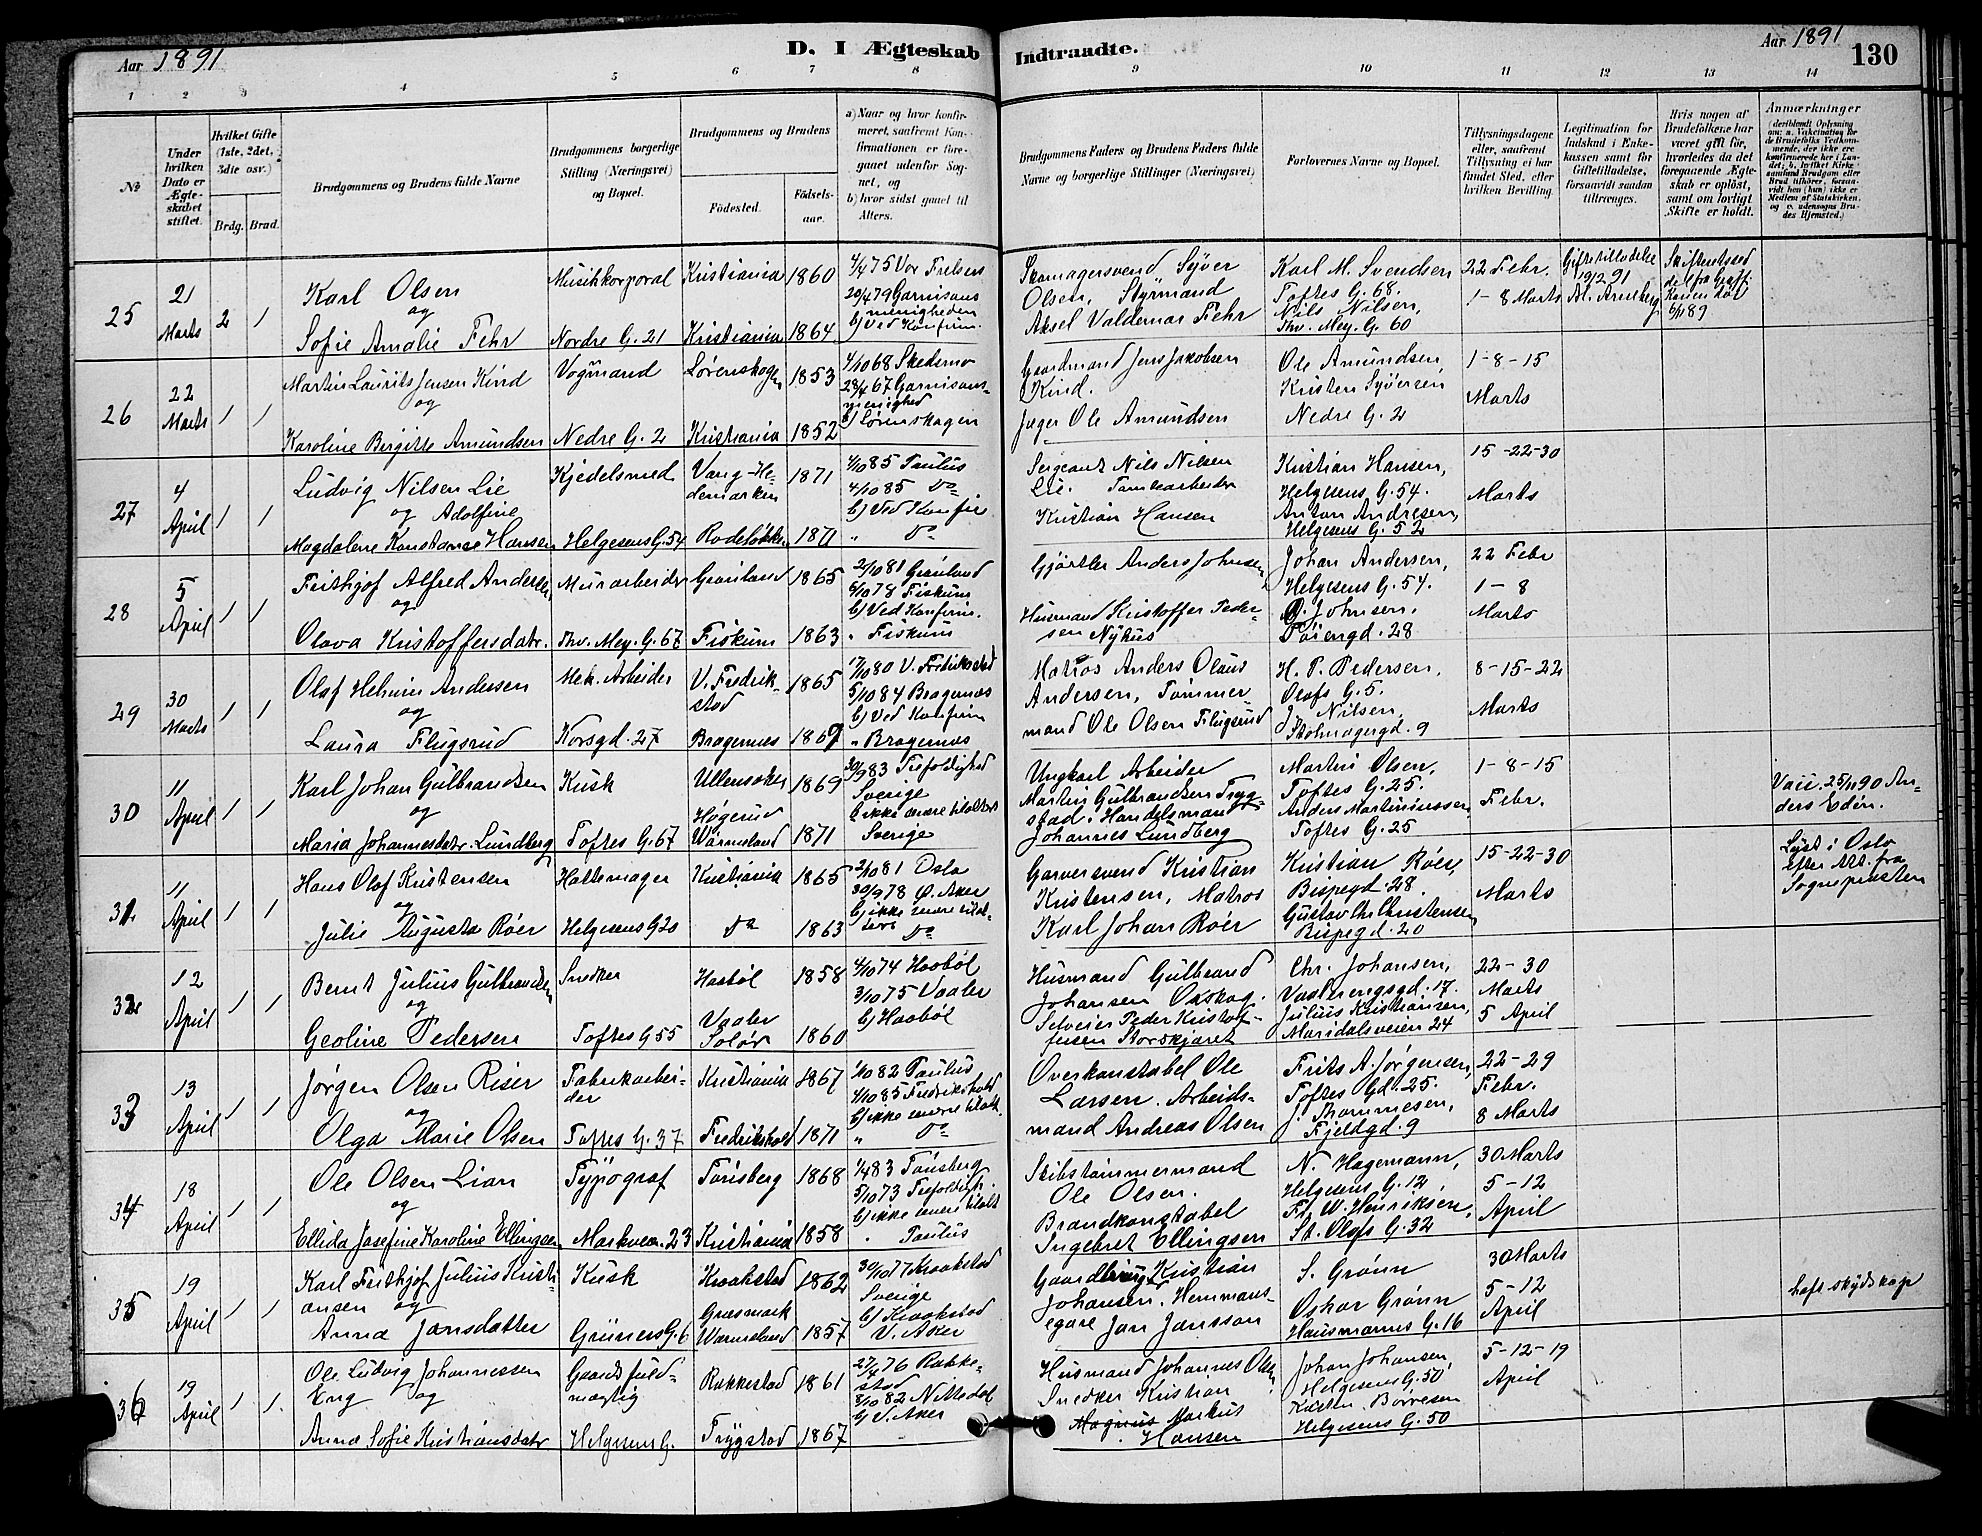 Aar 1891
D. I Ægteskab Indtraadte.
Aar 1891
130
1 2 3 4 5 6 7 8 9 10 11 12 13 14
No
Under hvilken Dato er Ægteskabet stiftet.
Hvilket Gifte (1ste, 2det, 3die osv.)
Brdg. Brud.
Brudgommens og Brudens fulde Navne
Brudgommens borgerlige Stilling (Næringsvei) og Bopæl.
Brudgommens og Brudens
Fødested.
Fødselsaar.
a) Naar og hvor konfirmeret, saafremt Konfirmationen er foregaaet udenfor Sognet, og
b) hvor sidst gaaet til Alters.
Brudgommens Faders og Brudens Faders fulde Navne og borgerlige Stillinger (Næringsvei)
Forlovernes Navne og Bopæl.
Tillysningsdagene eller, saafremt Tillysning ei har fundet Sted, efter hvilken Bevilling.
Legitimation for Indskud i Enkekassen samt for Giftetilladelse, forsaavidt saadan tiltrænges.
Hvis nogen af Brudefolkene har været gift før, hvorledes da det foregaaende Ægteskab er opløst, samt om lovligt Skifte er holdt.
Anmærkninger
(deriblandt Oplysning om: a. Vakcination for de Brudefolks Vedkommende, der ikke ere konfirmerede her i Landet; b. hvilket Kirkesamfund Brudgom eller Brud tilhører, forsaavidt han (hun) ikke er Medlem af Statskirken, og c. udensogns Brudes Hjemsted.)
25
21 Marts
2 1
Karl Olsen
og
Sofie Amalie Fehr
Musikkorporal
Nordre G. 21
Kristiania 1860
Kristiania 1864
4/4 75 Vor Frelsers
20/4 79 Garnisons
menigheden
b) Ved Konfirm.
Skomagersvend Syver
Olsen, Styrmand
Aksel Valdemar Fehr
Karl M. Svendsen
Toftes G. 68.
Nils Nilsen,
Thv. Mey. G. 60
22 Febr.
1-8 Marts
Giftetilladelse
19/2 91
Skifteattest
26
22 Marts
1 1
Martin Laurits Jensen Kind
og
Karoline Birgitte Amundsen
Vogmand
Nedre G. 2
Lørenskogen 1853
Kristiania 1852
4/10 68 Skedsmo
28/4 67 Garnisons-
menighed
b) Lørenskogen
Gaardmand Jens Jakobsen
Kind.
Jæger Ole Amundsen
Ole Amundsen,
Kristen Syversen
Nedre G. 2
1-8-15
Marts
27
4 April
1 1
Ludvig Nilsen Lie
og Adolfine
Magdalene Konstanse Hansen
Kjedelsmed
Helgesens G. 54
Vang He-
demarken 1871
Rodeløkken 1871
4/10 85 Paulus
4/10 85 Do
b) Ved Konfir
" Do
Sergeant Nils Nilsen
Lie. Tomtearbeider
Kristian Hansen
Kristian Hansen,
Helgesens G. 54.
Anton Andresen,
Helgesens G. 52
15-22-30
Marts
28
5 April
1 1
Frithjof Alfred Andersen
og
Olava Kristoffersdatr.
Murarbeider
Thv. Mey. G. 67
Grønland 1865
Fiskum 1863
2/10 81 Grønland
6/10 78 Fiskum
b) Ved Konfirm.
" Fiskum
Gjørtler Anders Johnsen
Husmand Kristoffer Peder-
sen Nyhus
Johan Andersen,
Helgesens G. 54.
O. Johnsen,
Tøiengd. 28
22 Febr
1-8
Marts
29
30 Marts
1 1
Olaf Helmin Andersen
og
Laura Flugsrud
Mek. Arbeider
Korsgd. 27
V. Fredrik-
stad 1865
Bragernes 1869
17/10 80 V. Fredrikstad
5/10 84 Bragernes
b) Ved Konfirm
" Bragernes
Matros Anders Olaus
Andersen, Tømmer
mand Ole Olsen Flugsrud
H. P. Pedersen,
Olafs G. 5.
J. Nilsen,
Skomagergd. 9
8-15-22
Marts
30
11 April
1 1
Karl Johan Gulbrandsen
og
Maria Johannesdatr. Lundberg
Kusk
Toftes G. 67
Ullensaker 1869
Høgerud
Wärmeland 1871
30/9 83 Trefoldighed
Sverige
b) ikke været tilalters
Sverige
Ungkarl Arbeider
Martin Gulbrandsen Tryg-
stad, Handelsmand
Johannes Lundberg
Martin Olsen,
Toftes G. 25.
Anders Martiniussen
Toftes G. 25
1-8-15
Febr.
Vacc. 25/11 90 An-
ders Edén.
31
11 April
1 1
Hans Olaf Kristensen
og
Julie Augusta Røer
Hattemager
Helgesens G 20
Kristiania 1865
Do 1863
2/10 81 Oslo
30/9 78 Ø. Aker
b) ikke været tilal-
ters Do
Garversvend Kristian
Kristensen, Matros
Karl Johan Røer
Kristian Røer,
Bispegd. 28.
Gustav Chr. Christensen,
Bispegd. 20
15-22-30
Marts
Lyst i Oslo
Efter Att. fra
Sognepresten
32
12 April
1 1
Bernt Julius Gulbrandsen
og
Geoline Pedersen
Snedker
Toftes G 55
Haabøl 1858
Vaaler
Soløer 1860
4/10 74 Haabøl
3/10 75 Vaaler
b) Haabøl
Husmand Gulbrand
Johansen Oxskog.
Selveier Peder Kristof-
fersen Storskjæret
Chr. Johansen,
Vaaltrengsgd. 17.
Julius Kristiansen,
Maridalsveien 24
22-30
Marts
5 April
33
13 April
1 1
Jørgen Olsen Riser
og
Olga Marie Olsen
Fabrikarbei-
der
Toftes G. 37
Kristiania 1867
Fredrikshald 1871
1/10 82 Paulus
4/10 85 Fredrikshald
b) ikke været tilalt.
" Do
Overkonstabel Ole
Larsen. Arbeids-
mand Andreas Olsen
Frits A. Jørgensen,
Toftes Gd. 25.
J. Thommesen,
Fjeldgd. 9
22-29
Febr.
8 Marts
34
18 April
1 1
Ole Olsen Lian
og
Ellida Josefine Karoline Ellingsen
Typograf
Markveien 23
Tønsberg 1868
Kristiania 1858
1/4 83 Tønsberg
5/10 73 Trefoldigh.
b) ikke været tilalt
" Paulus
Skibstømmermand
Ole Olsen.
Brandkonstabel
Ingebret Ellingsen
N. Hagemann,
Helgesens G. 12,
Fr. W. Henriksen,
St. Olafs G. 32
30 Marts
5-12
April
35
19 April
1 1
Karl Frithjof Julius Kristi-
ansen og
Anna Jansdatter
Kusk
Grüners G. 6
Kraakstad 1862
Grasmark
Wärmeland 1857
30/10 77 Kraakstad
Sverige
b) Kraakstad
V. Aker
Gaardbruger Kristian
Johansen. Hemmans-
egare Jan Jansson
S. Grønn
Oskar Grønn
Hausmanns G. 16
30 Marts
5-12
April
haft skydskop
36
19 April
1 1
Ole Ludvig Johannessen
Eng og
Anna Sofie Kristiansdatr
Gaardsfuld-
mægtig
Helgesens G.
Rakkestad 1861
Trygstad 1867
27/4 76 Rakke-
stad
8/10 82 Nittedal
b) V. Aker
Husmand Johannes Olsen
Snedker Kristian
Magnus Markus
Hansen
Johan Johansen,
Helgesens G. 50
Kristen Børresen
Helgesens G. 50
5-12-19
April